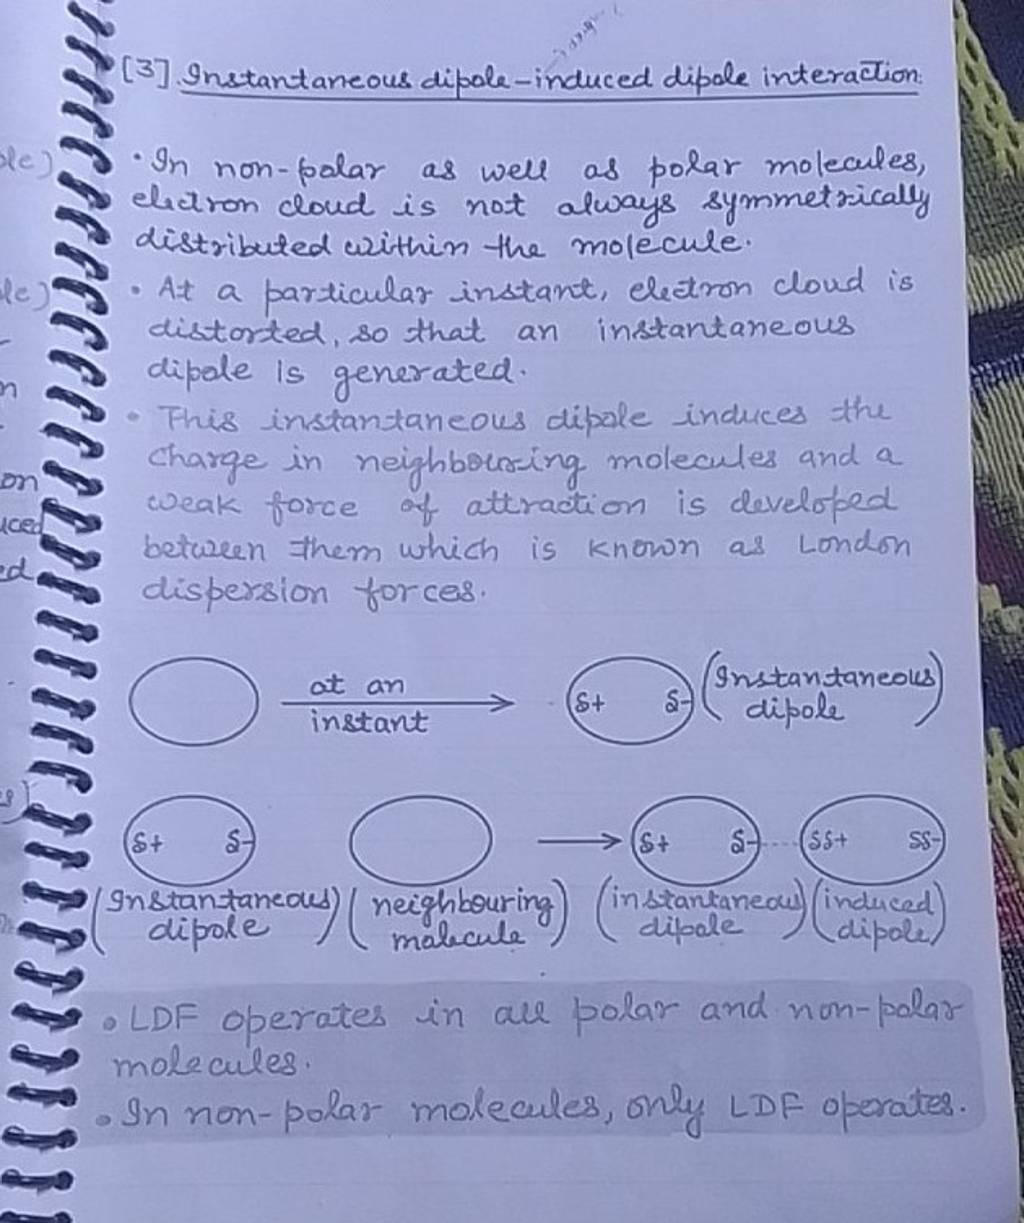 [3]. Instantaneous dipole-induced dipole interaction.
• In non-polar as well as polar molecules,
electron cloud is not always symmetrically
distributed within the molecule.
• At a particular instant, electron cloud is
distorted, so that an instantaneous
dipole is generated.
• This instantaneous dipole induces the
charge in neighbouring molecules and a
weak force of attraction is developed
between them which is known as London
dispersion forces.
at an
instant
δ+ δ- (Instantaneous
dipole)
δ+ δ- δ+ δ- δδ+ δδ-
(Instantaneous
dipole)
(neighbouring
molecule)
(instantaneous
dipole)
(induced
dipole)
• LDF operates in all polar and non-polar
molecules.
• In non-polar molecules, only LDF operates.